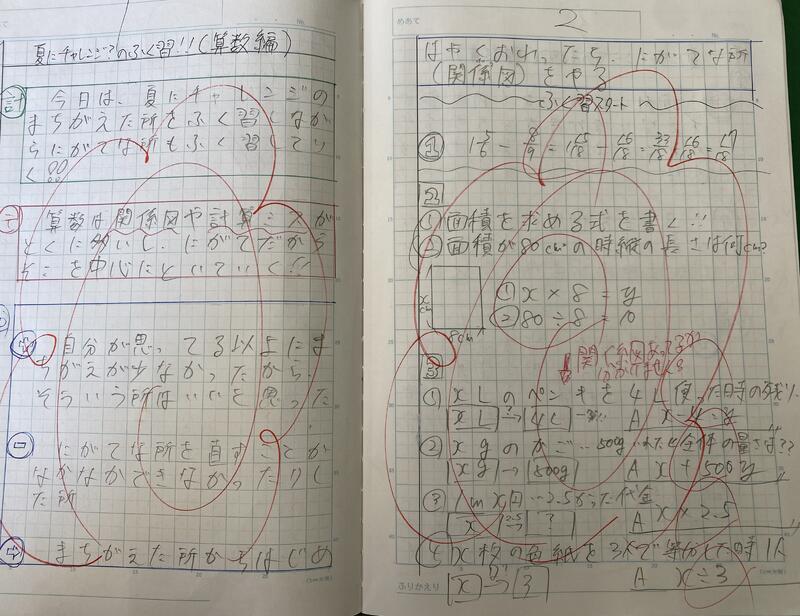 夏にチャレンジ?のふく習!!(算数編)
計
今日は、夏にチャレンジの
まちがえた所をふく習しなが
らにがてな所もふく習してい
く!!
算数は関係図や計算ミスが
とくに多いし、にがてだから
そこを中心にといていく!!
自分が思ってる以上にま
ちがえが少なかったから
そういう所はいいと思った
にがてな所を直すことが
なかなかできなかったりし
た所
まちがえた所からはじめ
めあて
No.
2
はやくおわったら、にがてな所
(関係図)をやる
ふく習スタート
1 1 5/6 - 8/9 = 1 15/18 - 16/18 = 33/18 - 16/18 = 17/18
2
①面積を求める式を書く!!
②面積が80cm²の時縦の長さは何cm?
xcm
8cm
① x × 8 = y
② 80 ÷ 8 = 10
3
関係図あってるか
①xLのペンキを4L使った時の残り
xL → 4L A x-4=y
②xgのかご…500g
xg → 500g A x+500=y
③1mx円…2.5かった代金
x 2.5 → ? A x×2.5
④x枚の色紙を3人で等分した時1人
x → 3 A x÷3
ふりかえり